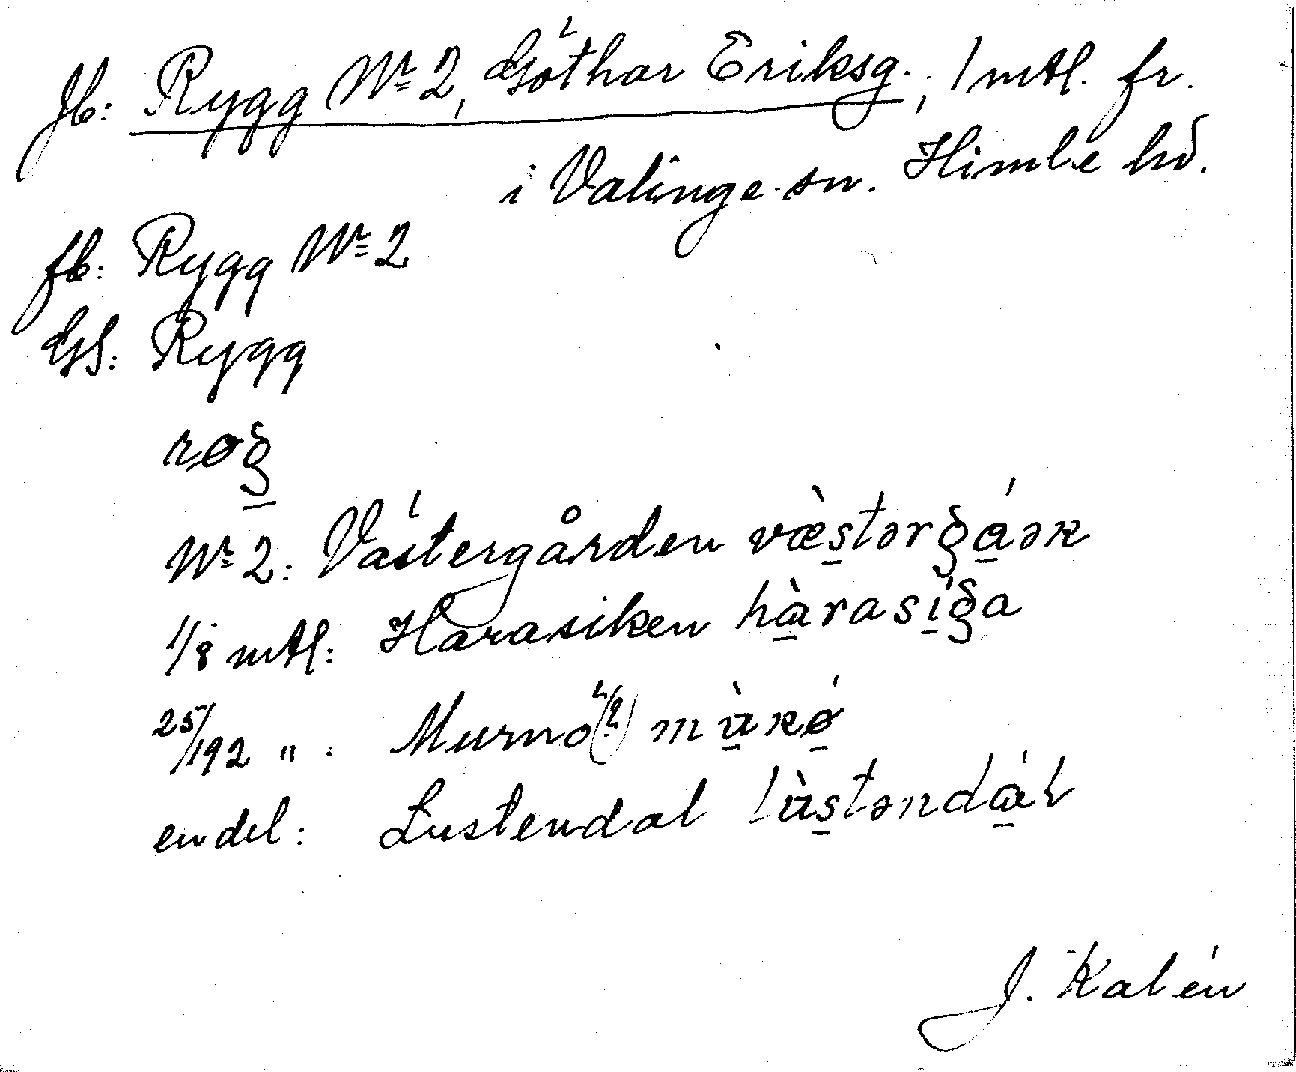 Jb: Rygg Nr 2, Göthar Eriksg., 1 mtl. fr.
i Valinge sn. Himle hd.
fb: Rygg Nr 2
GS: Rygg
røg
Nr 2: Västergården væ̀stərgáən
1/8 mtl: Harasiken hàrasíga
25/192 " : Murnö(?) mùnǿ
en del: Lustendal lùstəndál
J. Kalén